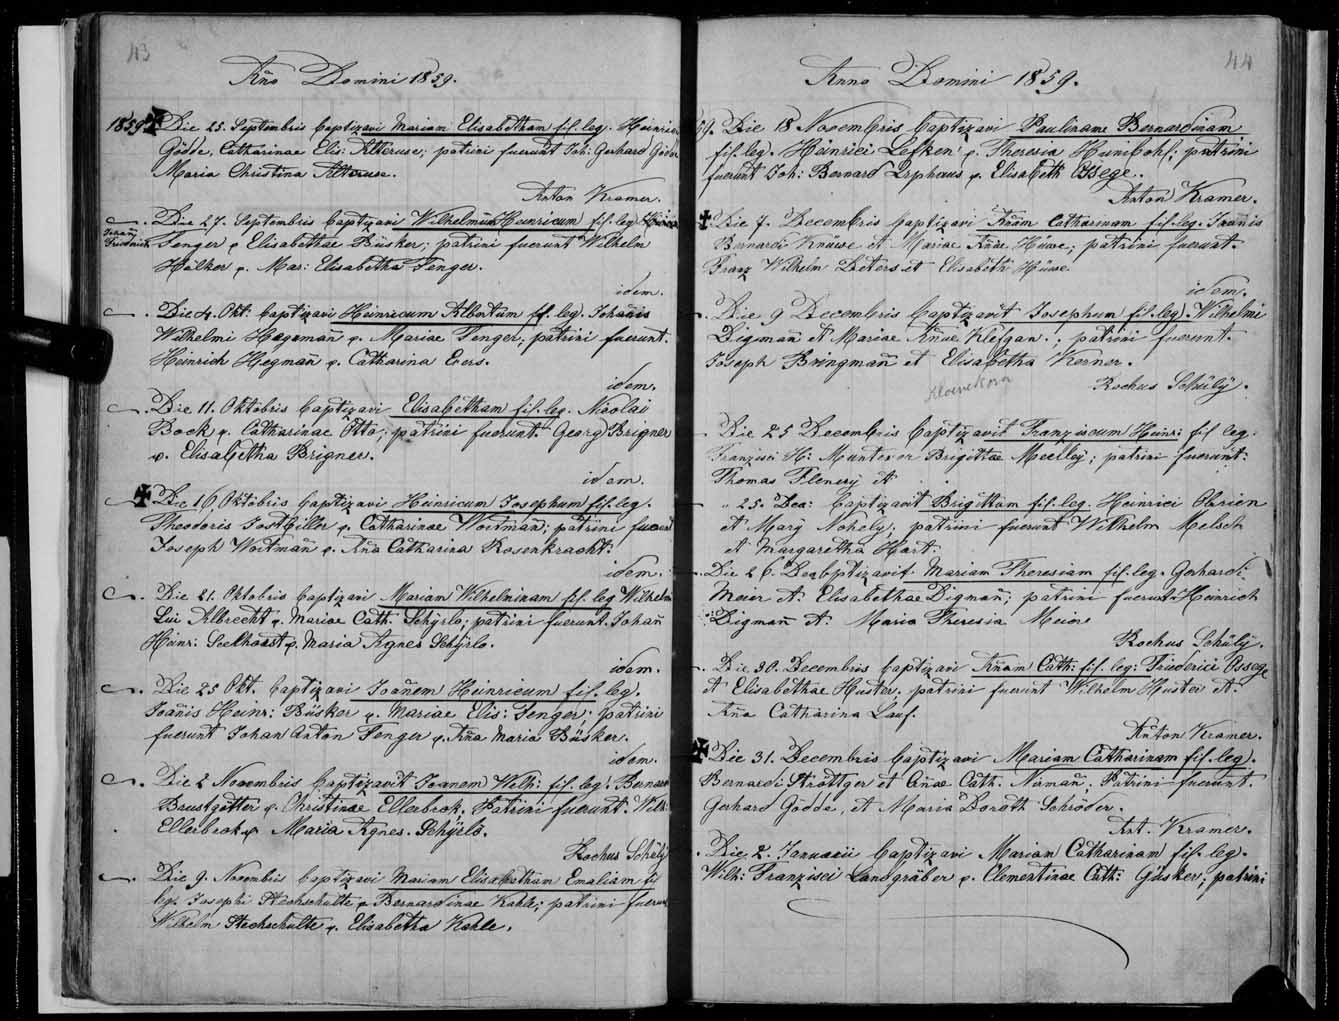 43
Año Domini 1859.
1859 Die 25. Septembris baptizavi Mariam Elisabetham fil. leg. Heinrici
Gödde, Catharinae Elis: Alteruse; patrini fuerunt Joh: Gerhard Gödde
Maria Christina Alteruse.
Anton Kramer.
Die 27. Septembris baptizavi Wilhelmum Heinricum fil. leg.
Johañ
Friedrich
Fenger & Elisabethae Büsker; patrini fuerunt Wilhelm
Hülker &. Mar: Elisabetha Fenger.
idem.
Die 4. Okt: baptizavi Heinricum Albertum fil. leg. Johañis
Wilhelmi Hegemañ &. Mariae Fenger; patrini fuerunt.
Heinrich Hegmañ &. Catharina Evers.
idem.
Die 11. Oktobris baptizavi Elisabetham fil. leg. Nicolai
Bock &. Catharinae Otto; patrini fuerunt Georg Brigner
&. Elisabetha Brigner.
idem.
Die 16 Oktobris baptizavi Heinricum Josephum fil. leg.
Theodoris Jostbiller &. Catharinae Woitmañ; patrini fuerunt
Joseph Woitmañ &. Aña Catharina Rosenkracht:
idem.
Die 21. Oktobris baptizavi Mariam Wilhelminam fil. leg Wilhelm
Lui Albrecht &. Mariae Cath. Schÿrlo; patrini fuerunt. Johañ
Heinr: Seelhorst &. Maria Agnes Schÿrlo.
idem.
Die 25 Okt. baptizavi Joañem Heinricum fil. leg.
Joañis Heinr: Büsker &. Mariae Elis: Fenger; patrini
fuerunt Johan Anton Fenger &. Aña Maria Büsker.
idem.
Die 2 Novembris baptizavit Joanem Welh: fil. leg. Bernard
&. Christinae Ellerbrok. Patrini fuerunt. Wilh
Ellerbrok &. Maria Agnes. Schÿrlo.
Rochus Schüly
Die 9. Novembris baptizavi Mariam Elisabetham Emaliam fil
leg. Josephi Stechschulte &. Bernardinae Kahle; patrini fuerunt
Wilhelm Stechschulte &. Elisabetha Kahle.
44
Anno Domini 1859.
59. Die 18 Novembris baptizavi Paulinam Bernardinam
fil. leg. Heinrici Lefken &. Theresia; patrini
fuerunt Joh: Bernard Orphaus &. Elisabeth Ossege.
Anton Kramer.
Die 7. Decembris baptizavi Añam Catharinam fil. leg. Joañis
Bernardi Knüwe et Mariae Añae Hüwe; patrini fuerunt.
Franz Wilhelm Deters et Elisabeth Hüwe.
idem.
Die 9 Decembris baptizavit Josephum fil. leg. Wilhelmi
Digman et Mariae Añae Klefgan.; patrini fuerunt.
Joseph Bringmañ et Elisabetha Kerner.
Rochus Schüly.
Die 25 Decembris baptizavit Franziscum Heinr: fil leg.
Franzisci H: Muntexor Brigittae Meelley; patrini fuerunt:
Thomas Flenery et
" 25. Dec: baptizavit Brigittam fil. leg. Heinrici Obrien
et Mary Nohely; patrini fuerunt Wilhelm Melsch
et Margaretha Hart.
Die 26. Dec bptizavit. Mariam Theresiam fil. leg. Gerhardi
Meier et. Elisabethae Digmañ; patrini fuerunt Heinrich
Digmañ et. Maria Theresia Meier
Rochus Schüly.
Die 30. Decembris baptizavi Añam Cath: fil. leg: Friederici Ossege
et Elisabethae Huster. patrini fuerunt Wilhelm Huster et.
Aña Catharina Lauf.
Anton Kramer.
Die 31. Decembris baptizavi Mariam Catharinam fil. leg.
Bernardi Strötiger et Añae Cath. Nirmañ; Patrini fuerunt.
Gerhard Gödde, et Maria Doroth Schröder.
Ant. Kramer.
Die 2. Januarii baptizavi Mariam Catharinam fil. leg.
Wilh: Franzisci Landgräber &. Clementinae Cath: Güsker; patrini